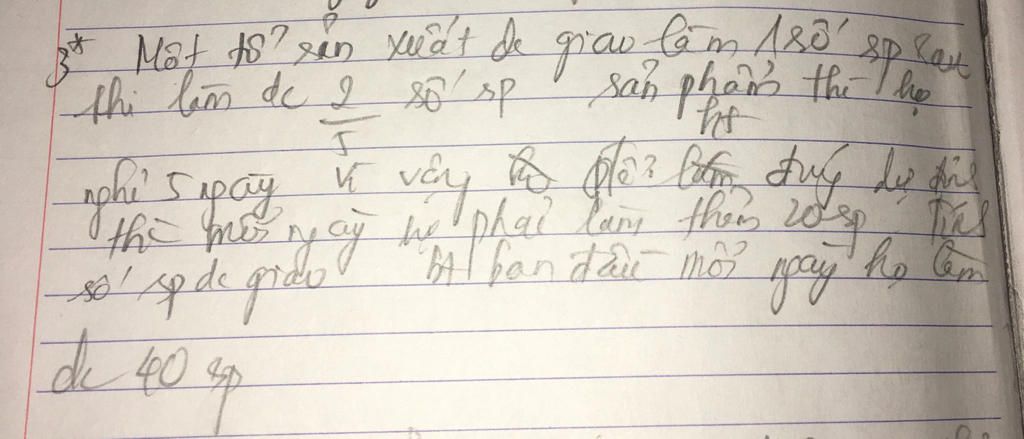 3* Một tổ sản xuất dc giao làm 1 số sp sau
khi làm dc 2/5 số sp sản phẩm thì họ
nghỉ 5 ngày vì vậy để ht đúng dự
thì mỗi ngày họ phải làm thêm 20 sp Tính
số sp dc giao ban đầu mỗi ngày họ làm
dc 40 sp